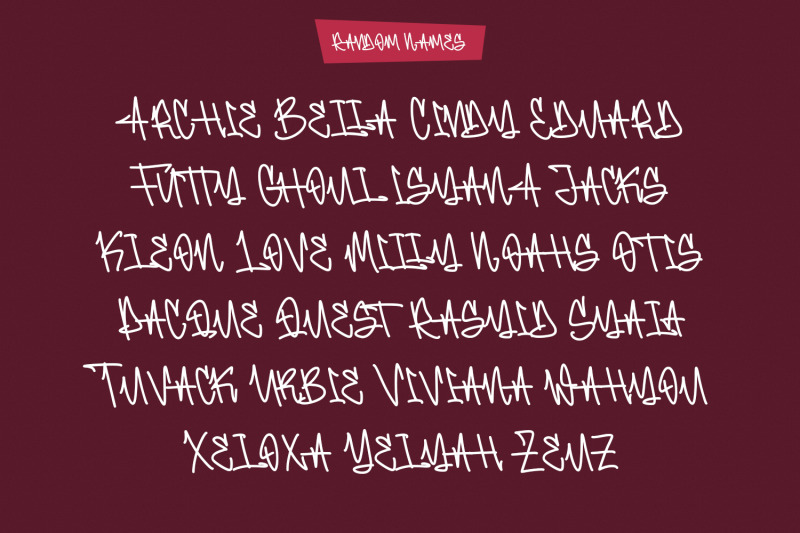 RANDOM NAMES
ARCHIE BELLA CINDY EDUARD
FUTTY GHOUL ISYANA JACKS
KLEON LOVE MILLY NOAHS OTIS
PACQUE QUEST RASYID SYALA
TUVACK URBIE VIVIANA WAHYOU
XELOXA YELYAH ZEUZ